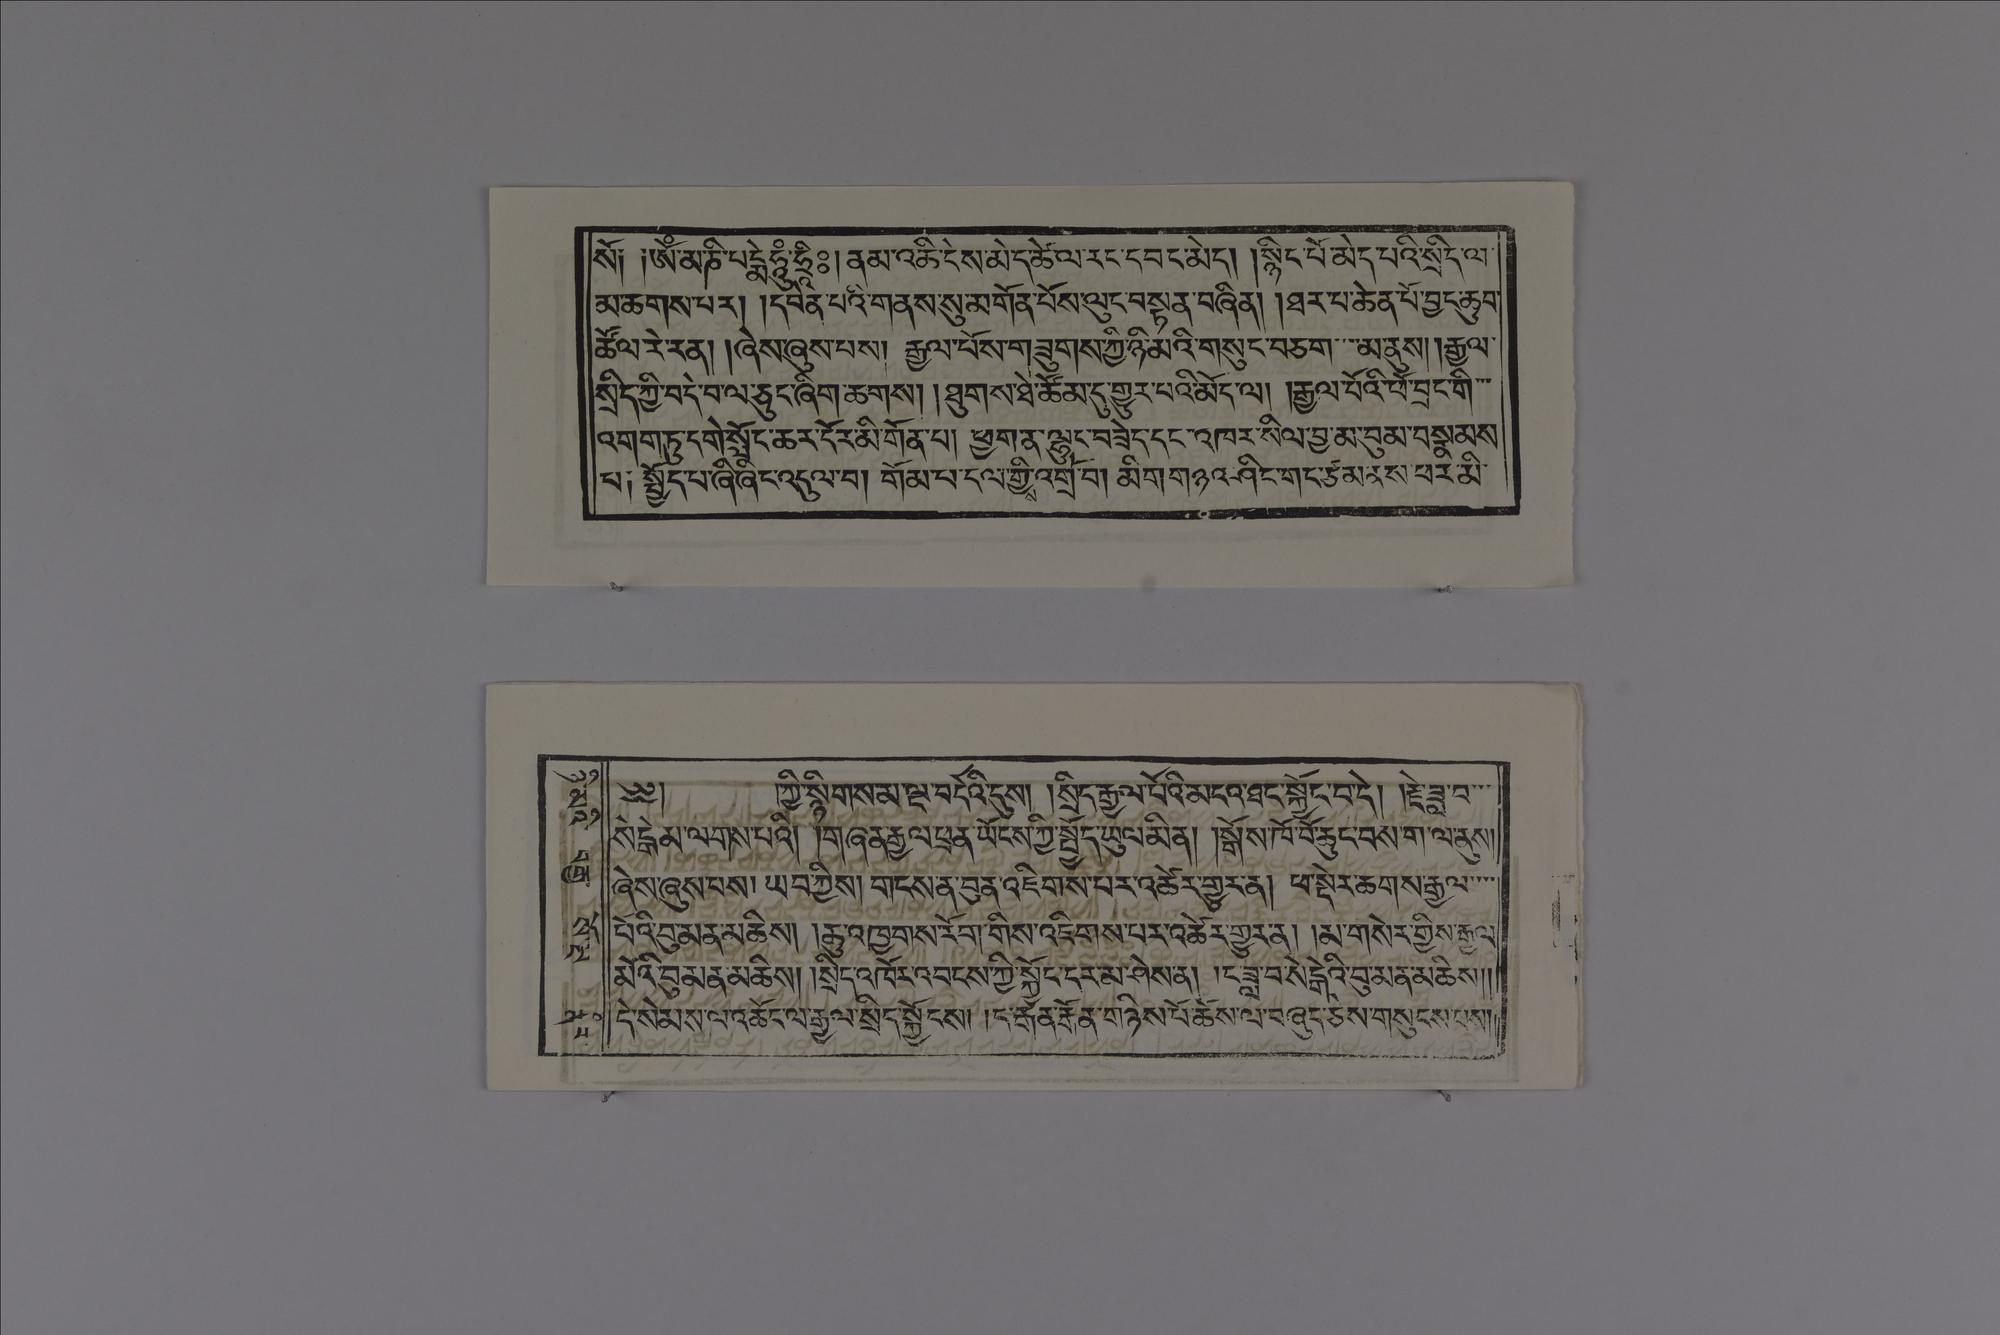 སོ། །ཨོཾ་མ་ཎི་པདྨེ་ཧཱུཾ་ཧྲཱིཿ། ནམ་འཆི་ངེས་མེད་ཚེ་ལ་རང་དབང་མེད། །སྙིང་པོ་མེད་པའི་སྲིད་ལ་
མ་ཆགས་པར། །དབེན་པའི་གནས་སུ་མགོན་པོས་ལུང་བསྟན་བཞིན། །ཐར་པ་ཆེན་པོ་བྱང་ཆུབ་
ཚོལ་རེ་རན། །ཞེས་ཞུས་པས། རྒྱལ་པོས་གཟུགས་ཀྱི་ཉི་མའི་གསུང་བཅག་མ་ནུས། །རྒྱལ་
སྲིད་ཀྱི་བདེ་བ་ལ་ཅུང་ཞིག་ཆགས། །ཐུགས་ཐེ་ཚོམ་དུ་གྱུར་པའི་མོད་ལ། །རྒྱལ་པོའི་ཕོ་བྲང་གི་
འགག་ཏུ་དགེ་སློང་ཆར་དོར་མི་གོན་པ། ཕྱག་ན་ལྷུང་བཟེད་དང་འཁར་སིལ་བྱ་མ་བུམ་བསྣམས་
པ། སྤྱོད་པ་ཞི་ཞིང་འདུལ་བ། གོམ་པ་དལ་གྱི་འགྲོ་བ། མིག་གཉའ་ཤིང་གང་ཙམ་ནས་ཕར་མི་
༄། །ཀྱི་སྙིགས་མ་ལྔ་བདོའི་དུས། །སྲིད་རྒྱལ་པོའི་མངའ་ཐང་སྐྱོང་བ་དེ། །རྗེ་ཟླ་བ་
སེངྒེ་མ་ལགས་པའི། །གཞན་རྒྱལ་ཕྲན་ཡོངས་ཀྱི་སྤྱོད་ཡུལ་མིན། །སྒོས་ཁོ་བོ་ཆུང་བས་ག་ལ་ནུས།
ཞེས་ཞུས་པས། ཡབ་ཀྱིས། གངས་ན་བུན་འཇིགས་པར་འཚེར་གྱུར་ན། ཕ་སྡེར་ཆགས་རྒྱལ་
པོའི་བུ་མ་ན་མཆིས། །ཆུ་འཁྱགས་རོག་གིས་འཇིགས་པར་འཚེར་གྱུར་ན། །མ་གསེར་གྱིས་རྒྱལ་
མོའི་བུ་མ་ན་མཆིས། །སྲིད་འཁོར་འབངས་ཀྱི་སྐྱོང་དར་མ་ཤེས་ན། །ང་ཟླ་བ་སེངྒེའི་བུ་མ་ན་མཆིས།།
དེ་སེམས་ལ་འཆོང་ལ་རྒྱལ་སྲིད་སྐྱོངས། །ང་རྒན་རྒོན་གཉིས་པོ་ཆོས་ལ་བཞུད་ཅེས་གསུངས་པས།